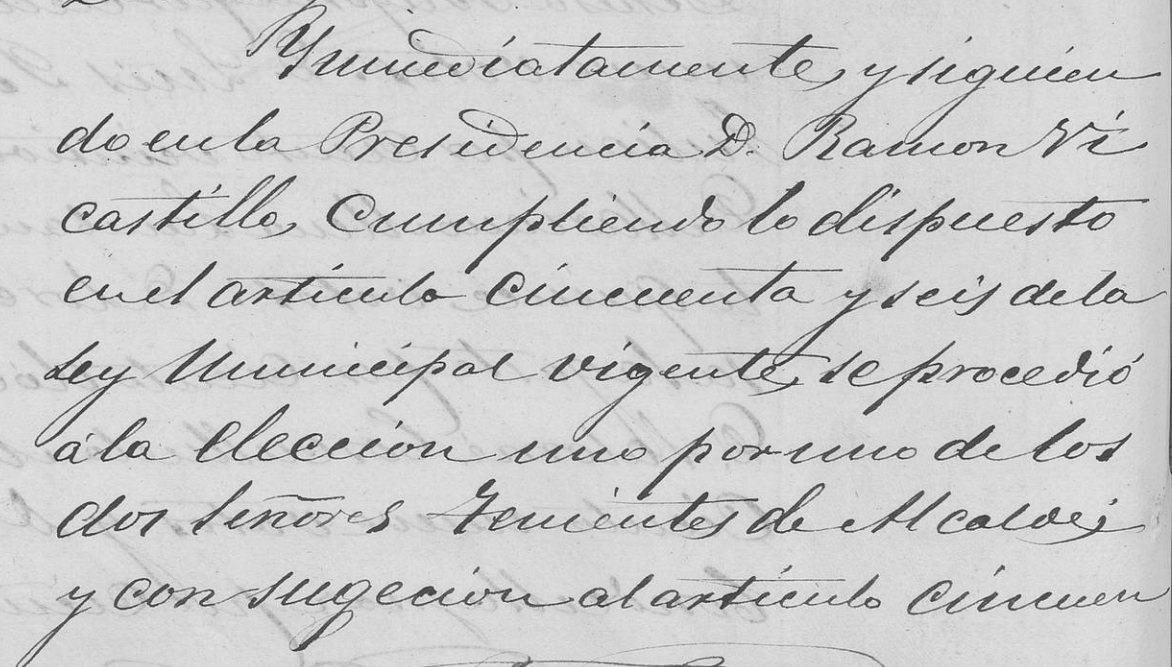 Ynmediatamente, y siguien
do en la Presidencia D. Ramon Vi
castillo, Cumpliendo lo dispuesto
en el artículo Cincuenta y seis de la
Ley Municipal vigente, se procedió
á la elección uno por uno de los
dos Señores Tenientes de Alcalde;
y con sugecion al artículo Cincuen